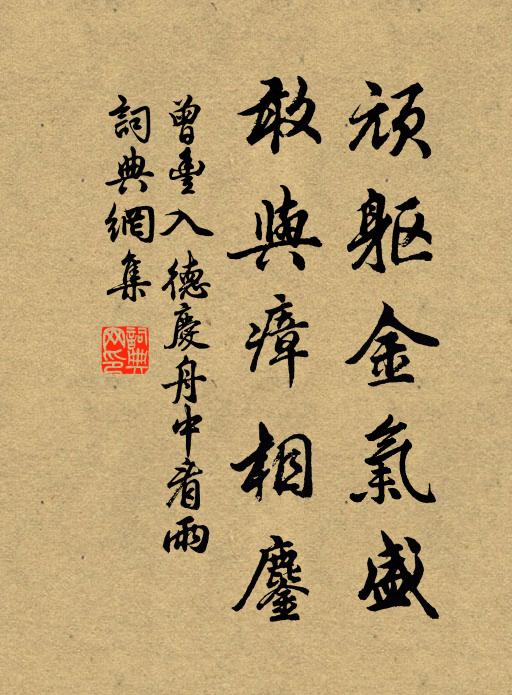 頑軀金氣盛
敢與瘴相鏖
曾豐入德慶舟中看雨
詞典網集
詞典
网印